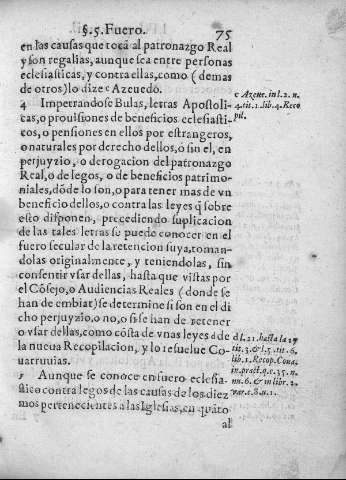 §. 5. Fuero. 75
en las causas que tocã al patronazgo Real
y son regalias, aunque sea entre personas
eclesiasticas, y contra ellas, como (demas
de otros) lo dize c Azeuedo.
c Azeue. in l. 2. n.
4. tit. 1. lib. 4. Reco
pil.
4 Impetrandose Bulas, letras Apostoli-
cas, o prouisiones de beneficios eclesiasti-
cos, o pensiones en ellos por estrangeros,
o naturales por derecho dellos, ò sin el, en
perjuyzio, o derogacion del patronazgo
Real, o de legos, o de beneficios patrimo-
niales, dõde lo son, o para tener mas de vn
beneficio dellos, o contra las leyes q̃ sobre
esto disponen, precediendo suplicacion
de las tales letras se puede conocer en el
fuero secular de la retencion suya, toman-
dolas originalmente, y teniendolas, sin
consentir vsar dellas, hasta que vistas por
el Cõsejo, o Audiencias Reales (donde se
han de embiar) se determine si son en el di
cho perjuyzio, o no, o si se han de retener
o vsar dellas, como cõsta de vnas leyes d de
la nueva Recopilacion, y lo resuelue Co-
uarruuias.
d l. 21. hasta la 27
tit. 3. & l. 5. tit. 6.
lib. 1. Recop. Coua.
in pract. q. c. 35. n.
nn. 6. & in libr. 2.
var. c. 8. n. 1.
5 Aunque se conoce en fuero eclesia-
stico contra legos de las causas de los diez
mos pertenecientes a las Iglesias, en quãto
al